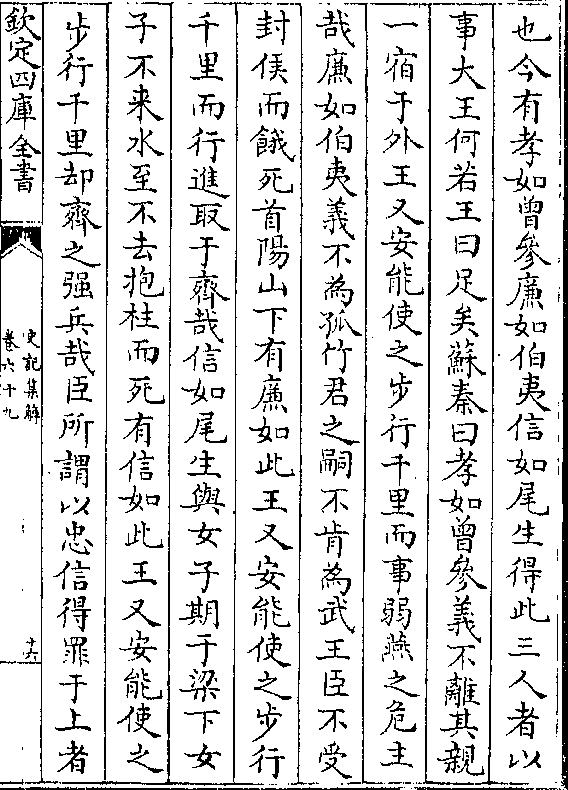 也今有孝如曾參廉如伯夷信如尾生得此三人者以
事大王何若王曰足矣蘇秦曰孝如曾參義不離其親
一宿于外王又安能使之步行千里而事弱燕之危主
哉廉如伯夷義不為孤竹君之嗣不肯為武王臣不受
封侯而餓死首陽山下有廉如此王又安能使之步行
千里而行進取于齊哉信如尾生與女子期于梁下女
子不来水至不去抱柱而死有信如此王又安能使之
步行千里却齊之强兵哉臣所謂以忠信得罪于上者
欽定四庫全書
史記集解
卷六十九
十六